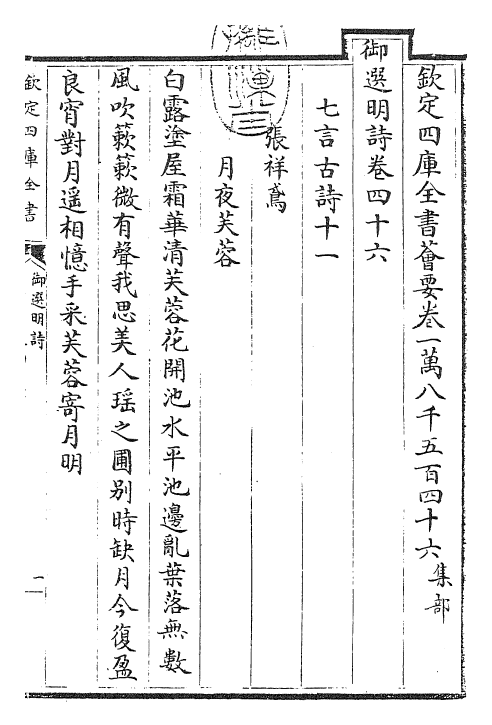 欽定四庫全書薈要卷一萬八千五百四十六集部
御選明詩卷四十六
七言古詩十一
張祥鳶
月夜芙蓉
白露塗屋霜華清芙蓉花開池水平池邊亂葉落無數
風吹蔌蔌微有聲我思美人瑶之圃别時缺月今復盈
良宵對月遥相憶手采芙蓉寄月明
欽定四庫全書
御選明詩
一